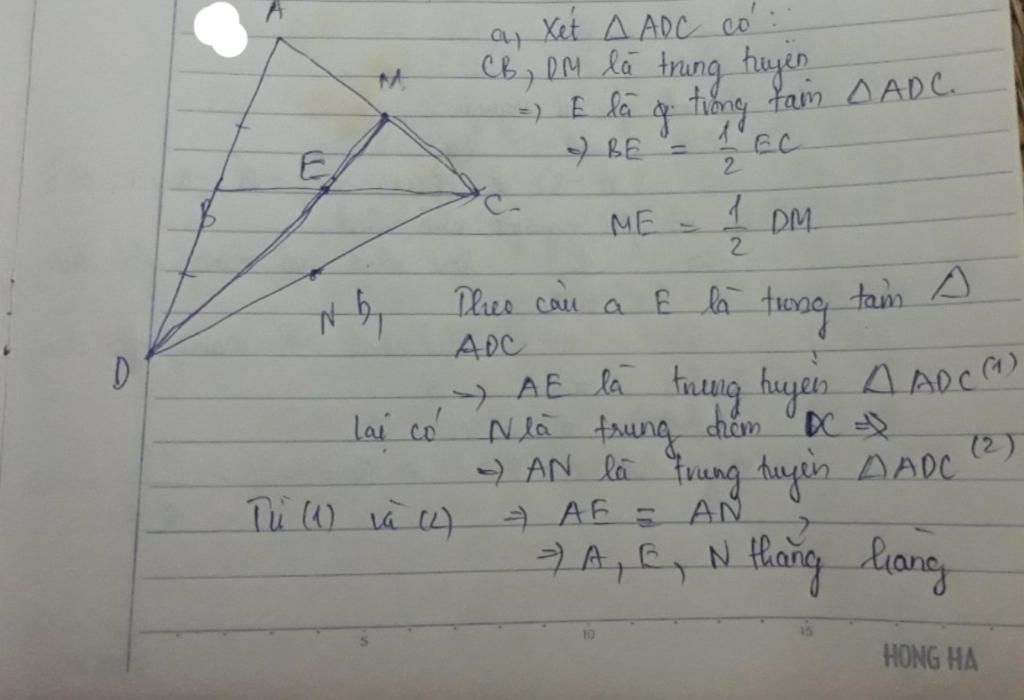 A
M
E
B
C
D
N
a, Xét △ ADC có :
CB, DM là trung tuyến
=> E là trọng tâm △ ADC.
=> BE = 1/2 EC
ME = 1/2 DM
b, Theo câu a E là trọng tâm △
ADC
=> AE là trung tuyến △ ADC (1)
lại có N là trung điểm DC =>
=> AN là trung tuyến △ ADC (2)
Từ (1) và (2) => AE ≡ AN
=> A, E, N thẳng hàng
5 10 15
HONG HA